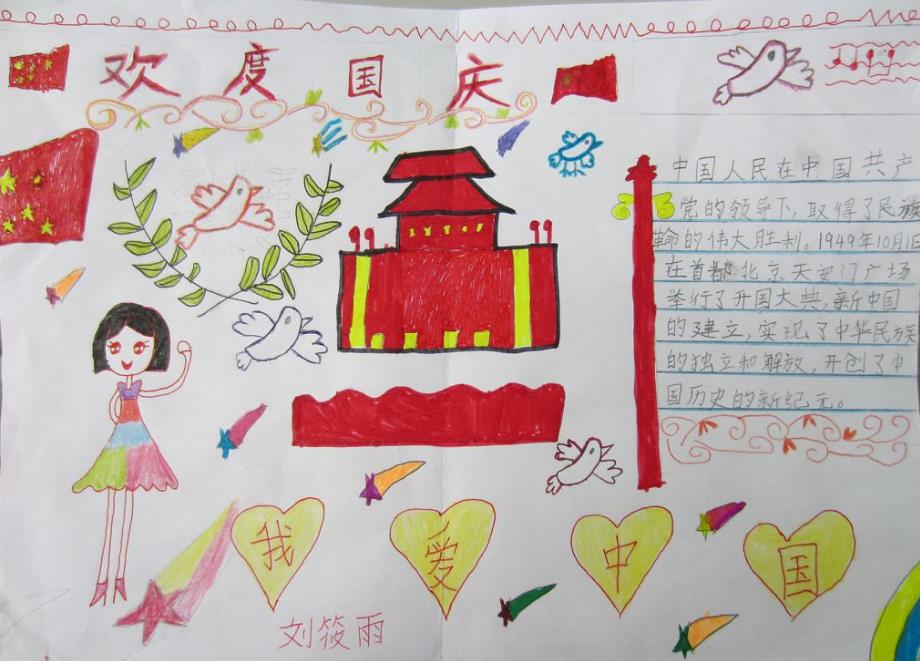 欢度国庆
中国人民在中国共产
党的领导下，取得了民族
革命的伟大胜利。1949年10月1日
在首都北京天安门广场
举行了开国大典，新中国
的建立，实现了中华民族
的独立和解放，开创了中
国历史的新纪元。
我爱中国
刘筱雨